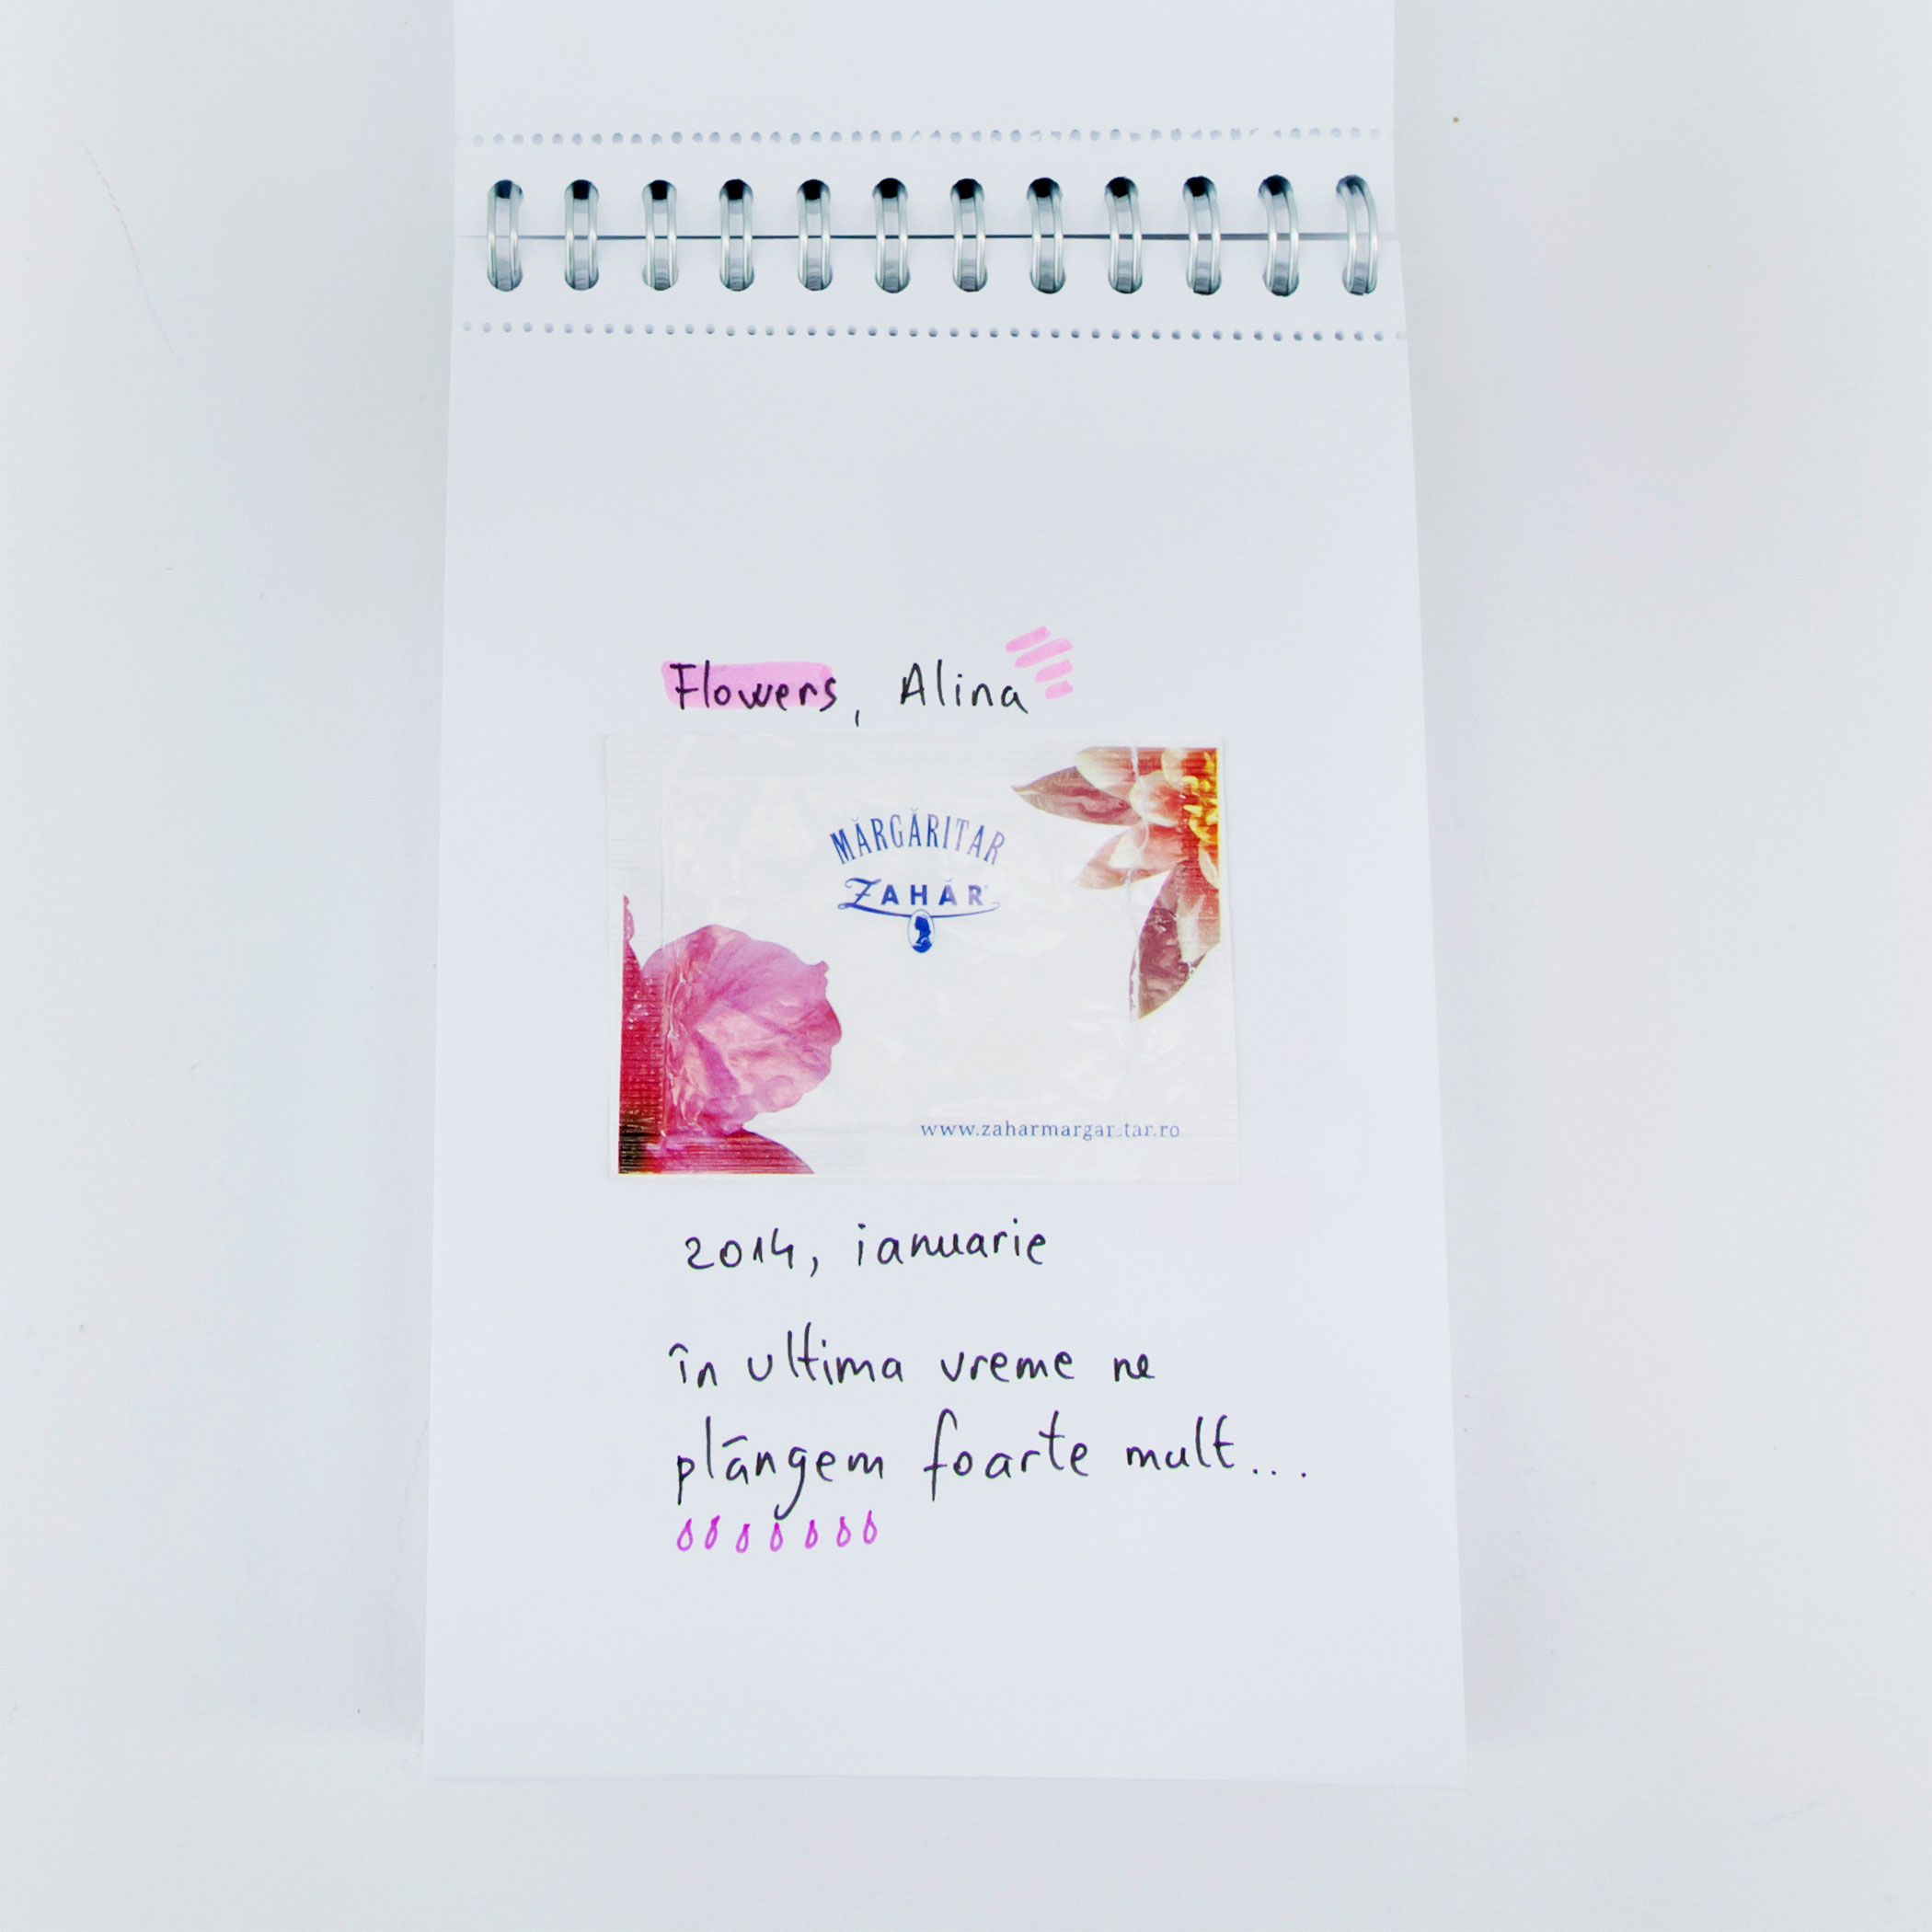 Flowers, Alina
MĂRGĂRITAR
ZAHĂR
www.zaharmargar.tar.ro
2014, ianuarie
în ultima vreme ne
plângem foarte mult...